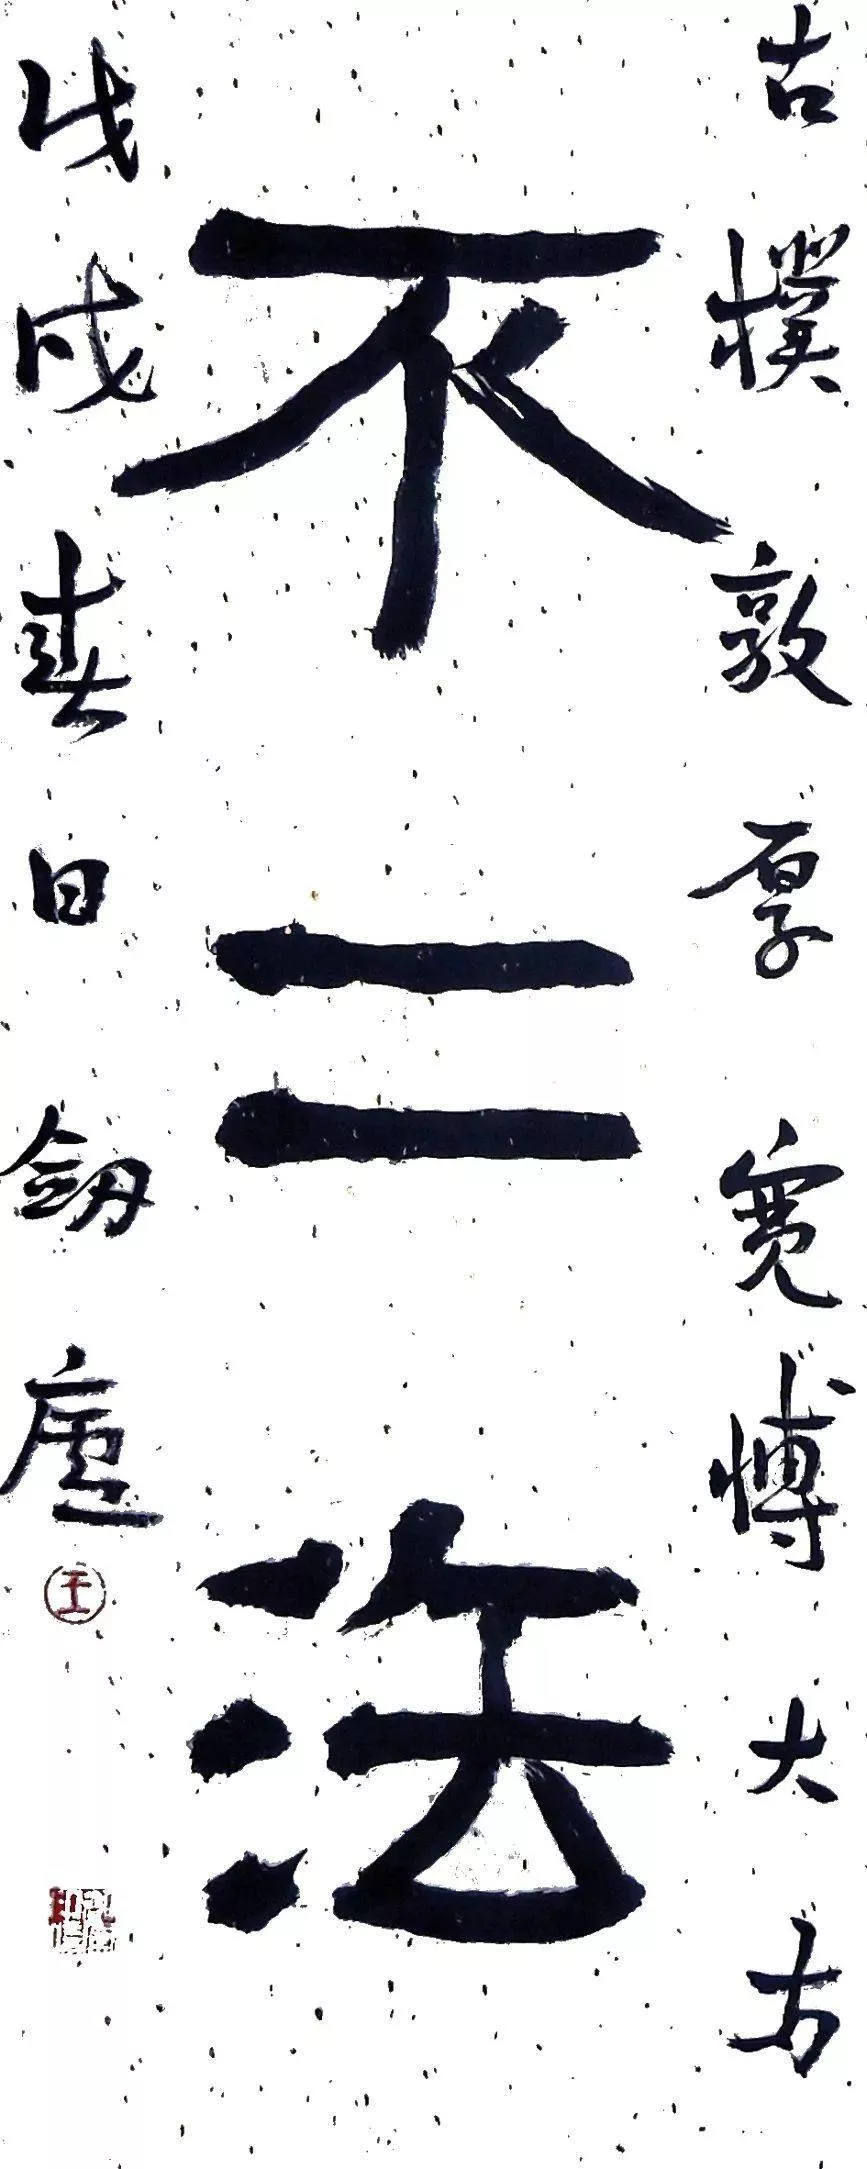 古樸敦厚寬博大方
不二法
戊戌春日劍廬
王